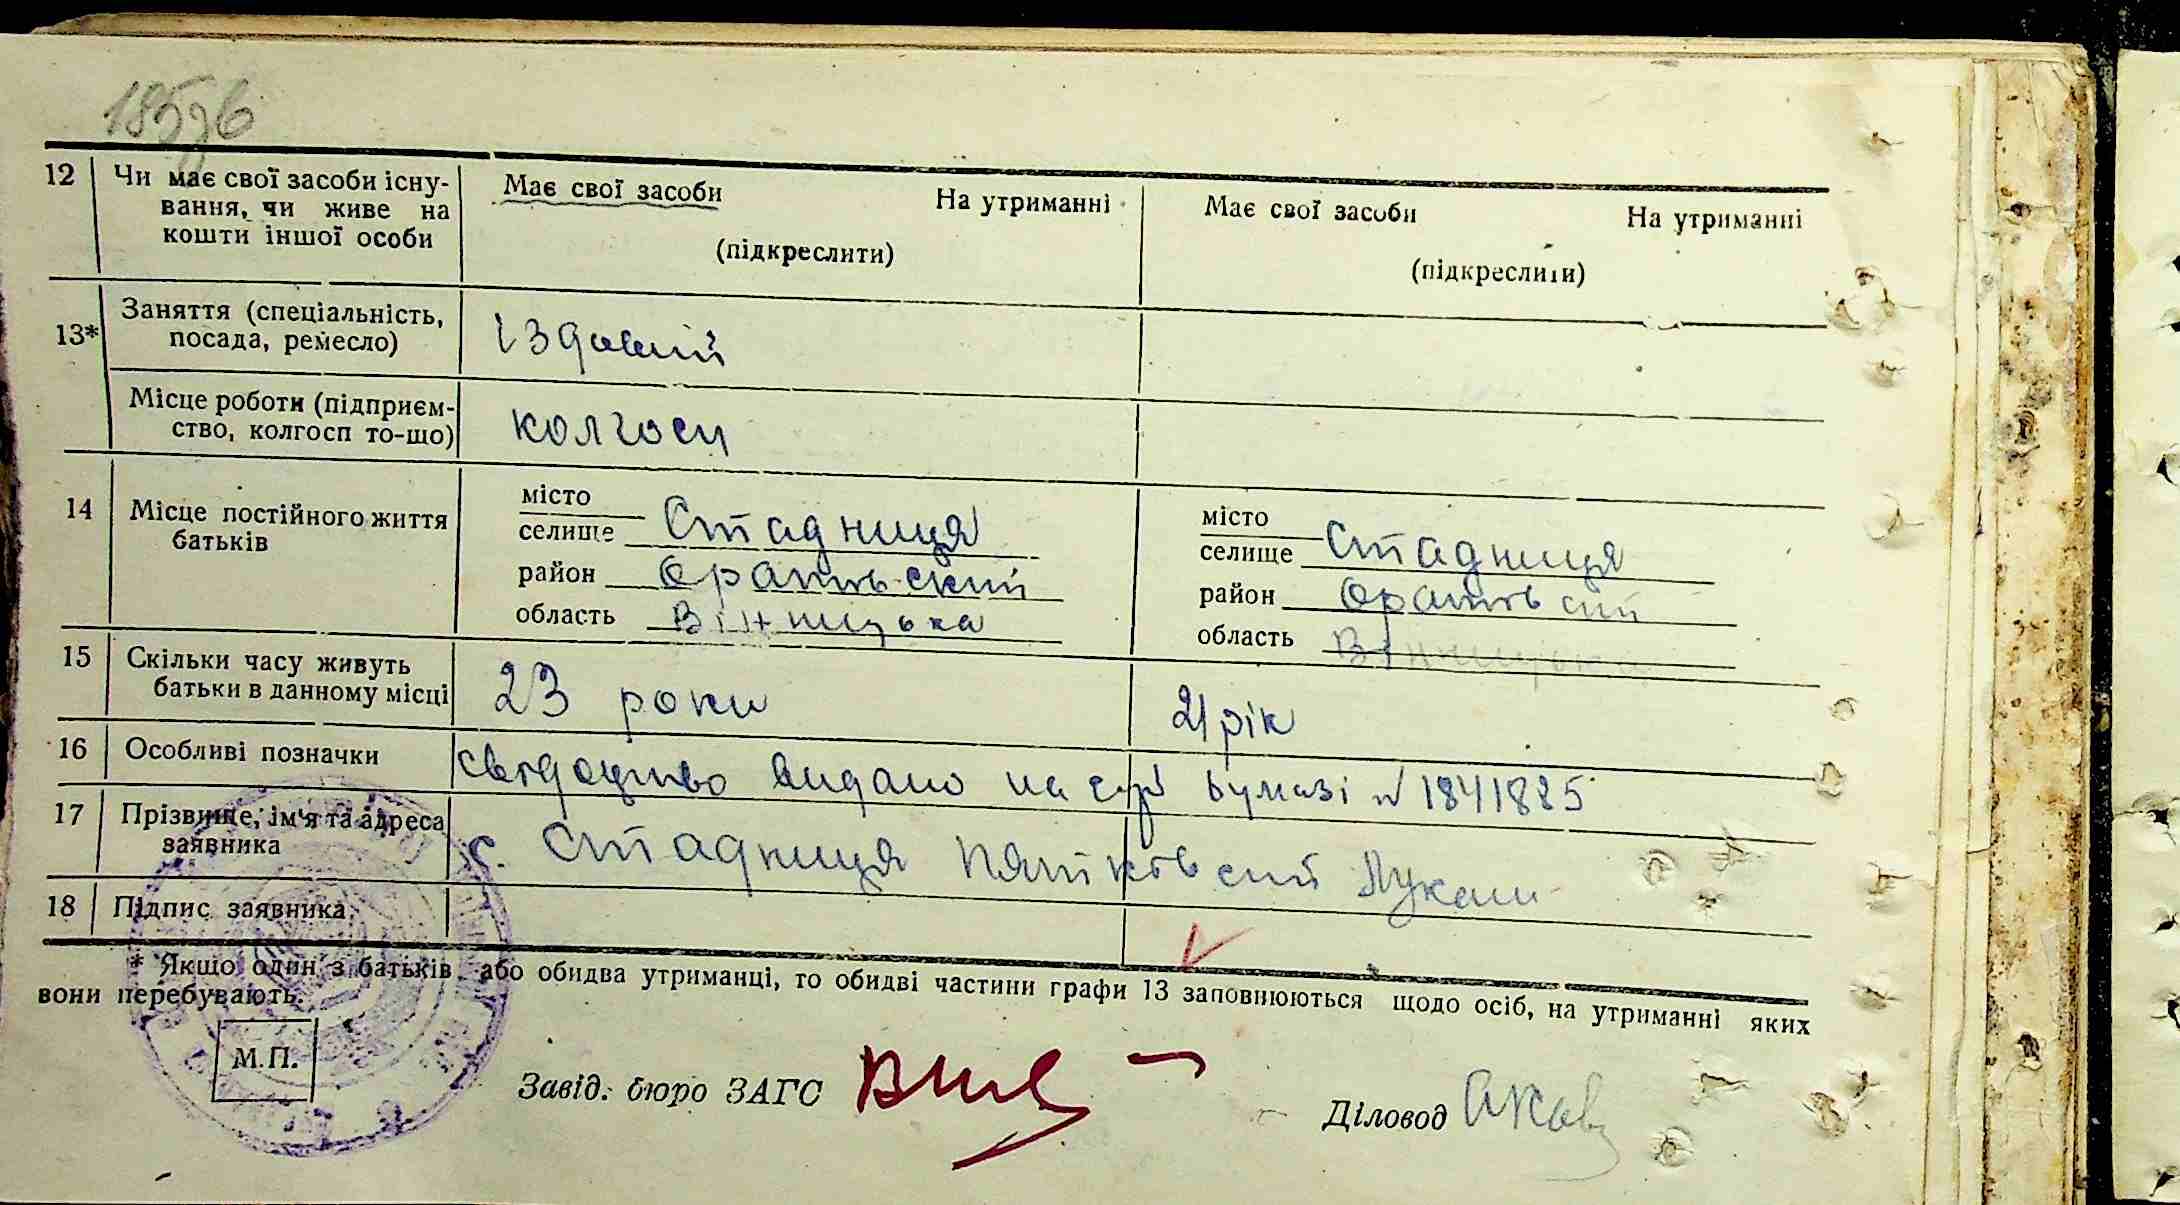 185зв
12 Чи має свої засоби існу-
вання, чи живе на
кошти іншої особи
Має свої засоби На утриманні
(підкреслити)
Має свої засоби На утриманні
(підкреслити)
13* Заняття (спеціальність,
посада, ремесло)
їздовий
Місце роботи (підприєм-
ство, колгосп то-що)
колгосп
14 Місце постійного життя
батьків
місто
селище Стадниця
район Оратівський
область Вінницька
місто
селище Стадниця
район Оратівсий
область Вінницька
15 Скільки часу живуть
батьки в данному місці
23 роки
21 рік
16 Особливі позначки
свідоцтво видано на бумазі № 1841885
17 Прізвище, ім'я та адреса
заявника
с. Стадниця Пятковсий Лукаш
18 Підпис заявника
* Якщо один з батьків або обидва утриманці, то обидві частини графи 13 заповнюються щодо осіб, на утриманні яких
вони перебувають.
М.П.
Завід. бюро ЗАГС
Діловод